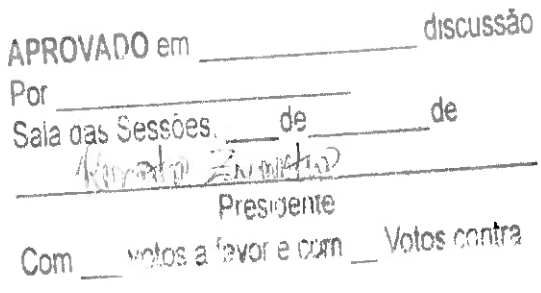 APROVADO em ____________ discussão
Por ____________
Sala das Sessões, ____ de ________ de
Presidente
Com ___ votos a favor e com ___ Votos contra